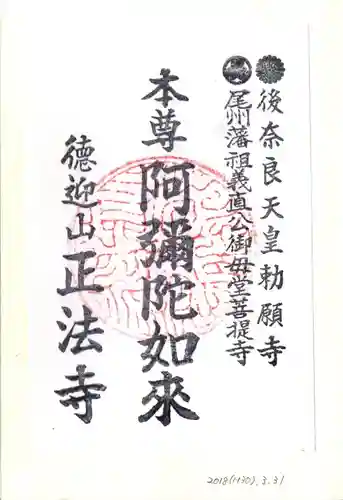 後奈良天皇勅願寺
尾州藩祖義直公御母堂菩提寺
本尊 阿彌陀如來
徳迎山正法寺
2018(H30).3.31